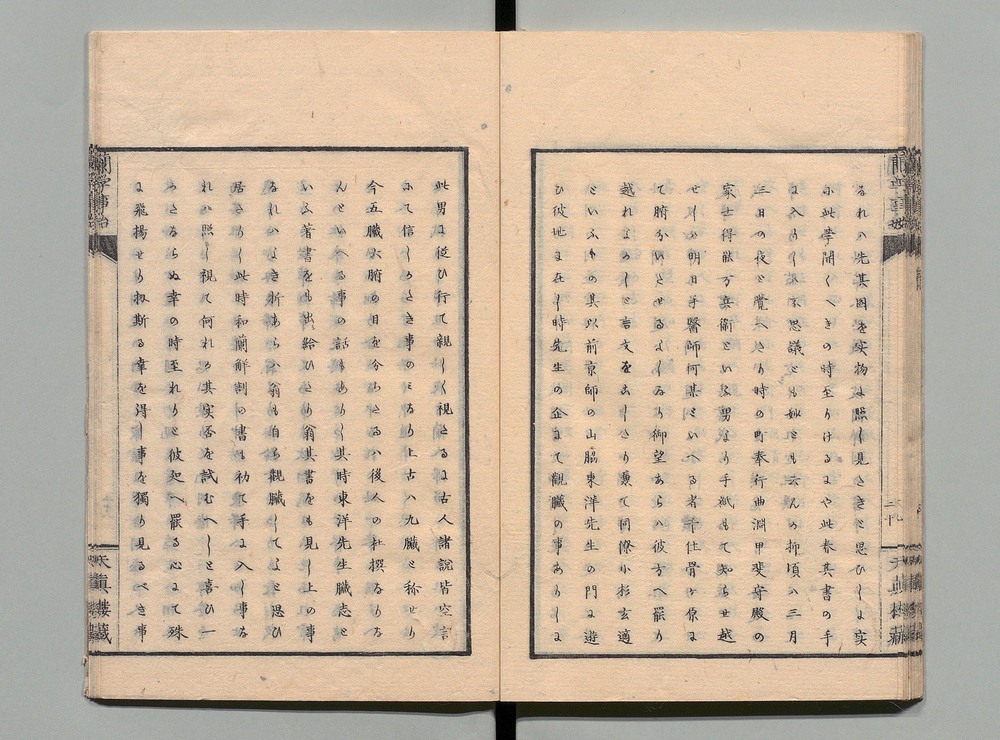 るれハ先其図を実物に照し見たきと思ひしに実
に此学開くへきの時至りけるにや此春其書の手
に入りしハ不思議とも妙とも云んか抑頃ハ三月
三日の夜と覚へたり時の町奉行曲淵甲斐守殿の
家士得能万兵衛といふ男より手紙もて知らせ越
せしハ明日手醫師何某といへる者千住骨ヶ原に
て腑分いたせるよしなり御望あらハ彼方へ罷り
越れよかしと言文をよこしたり兼て同僚小杉玄適
といふもの其以前京師の山脇東洋先生の門に遊
ひ彼地に在し時先生の企にて観臓の事ありしに
此男に従ひ行て親しく視たるに古人諸説皆空言
にて信しかたき事のミなり上古ハ九臓と称せり
今五臓六腑の目を分ちたるハ後人の杜撰なりな
んといへる事の話もありし其時東洋先生臓志と
いふ著書をも出給ひたり翁其書をも見し上の事
なれハよき折あらハ翁も自ら観臓してよと思ひ
居たりし此時和蘭解剖の書も初て手に入し事な
れハ照し視て何れか其実否を試むへしと喜ひ一
かたならぬ幸の時至れりと彼処へ罷る心にて殊
に飛揚せり扨斯る幸を得し事を獨り見るべき事
蘭学事始
天真楼蔵